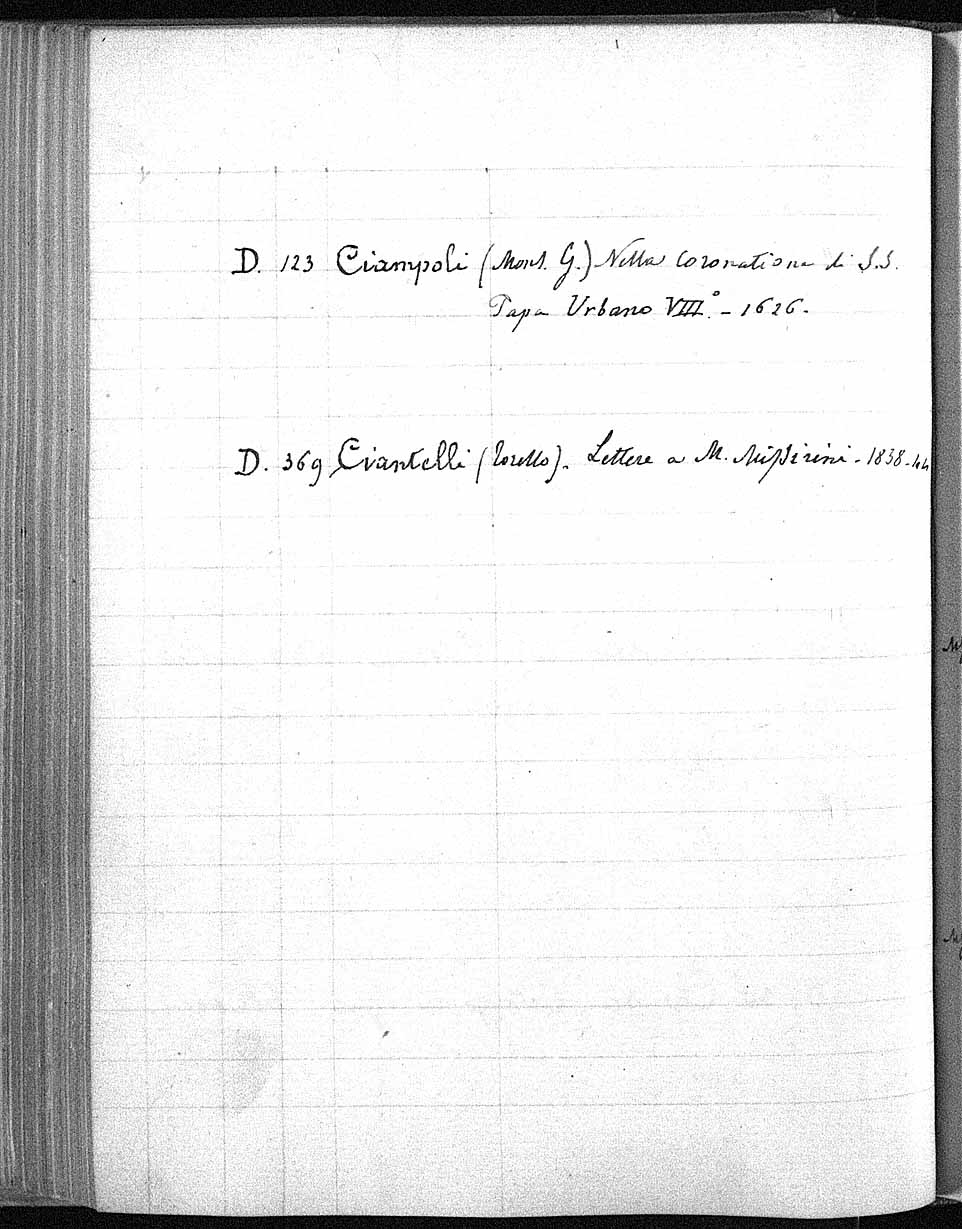 D. 123 Ciampoli (Mons. G.) Nella Coronatione di S.S.
Papa Urbano VIII.° - 1626.
D. 369 Ciantelli (Torello). Lettere a M. Missirini - 1838-44